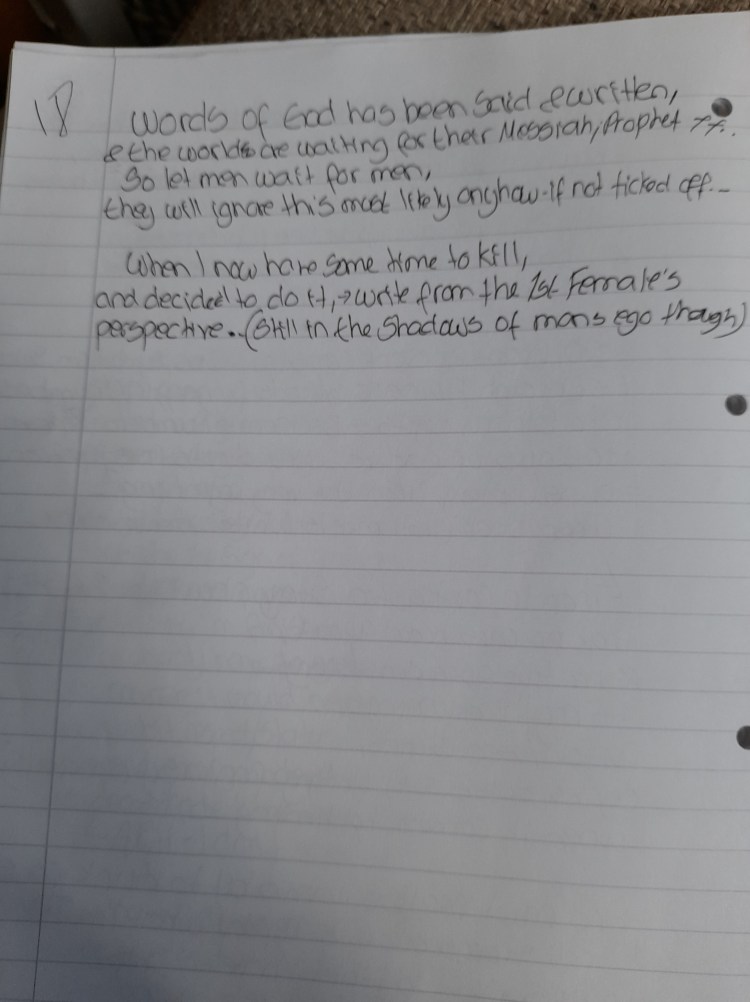 18
Words of God has been said & written,
& the worlds are waiting for their Messiah, Prophet
So let men wait for men,
they will ignore this most likely anyhow - if not ticked off..
When I now have some time to kill,
and decided to do it, → write from the 1st Female's
perspective.. (Still in the Shadows of mans ego though)